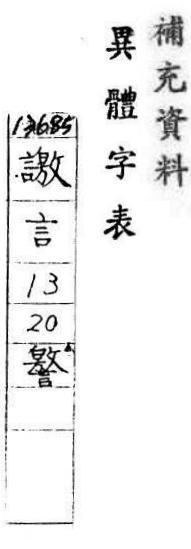 補充資料
異體字表
13685
譤
言
13
20